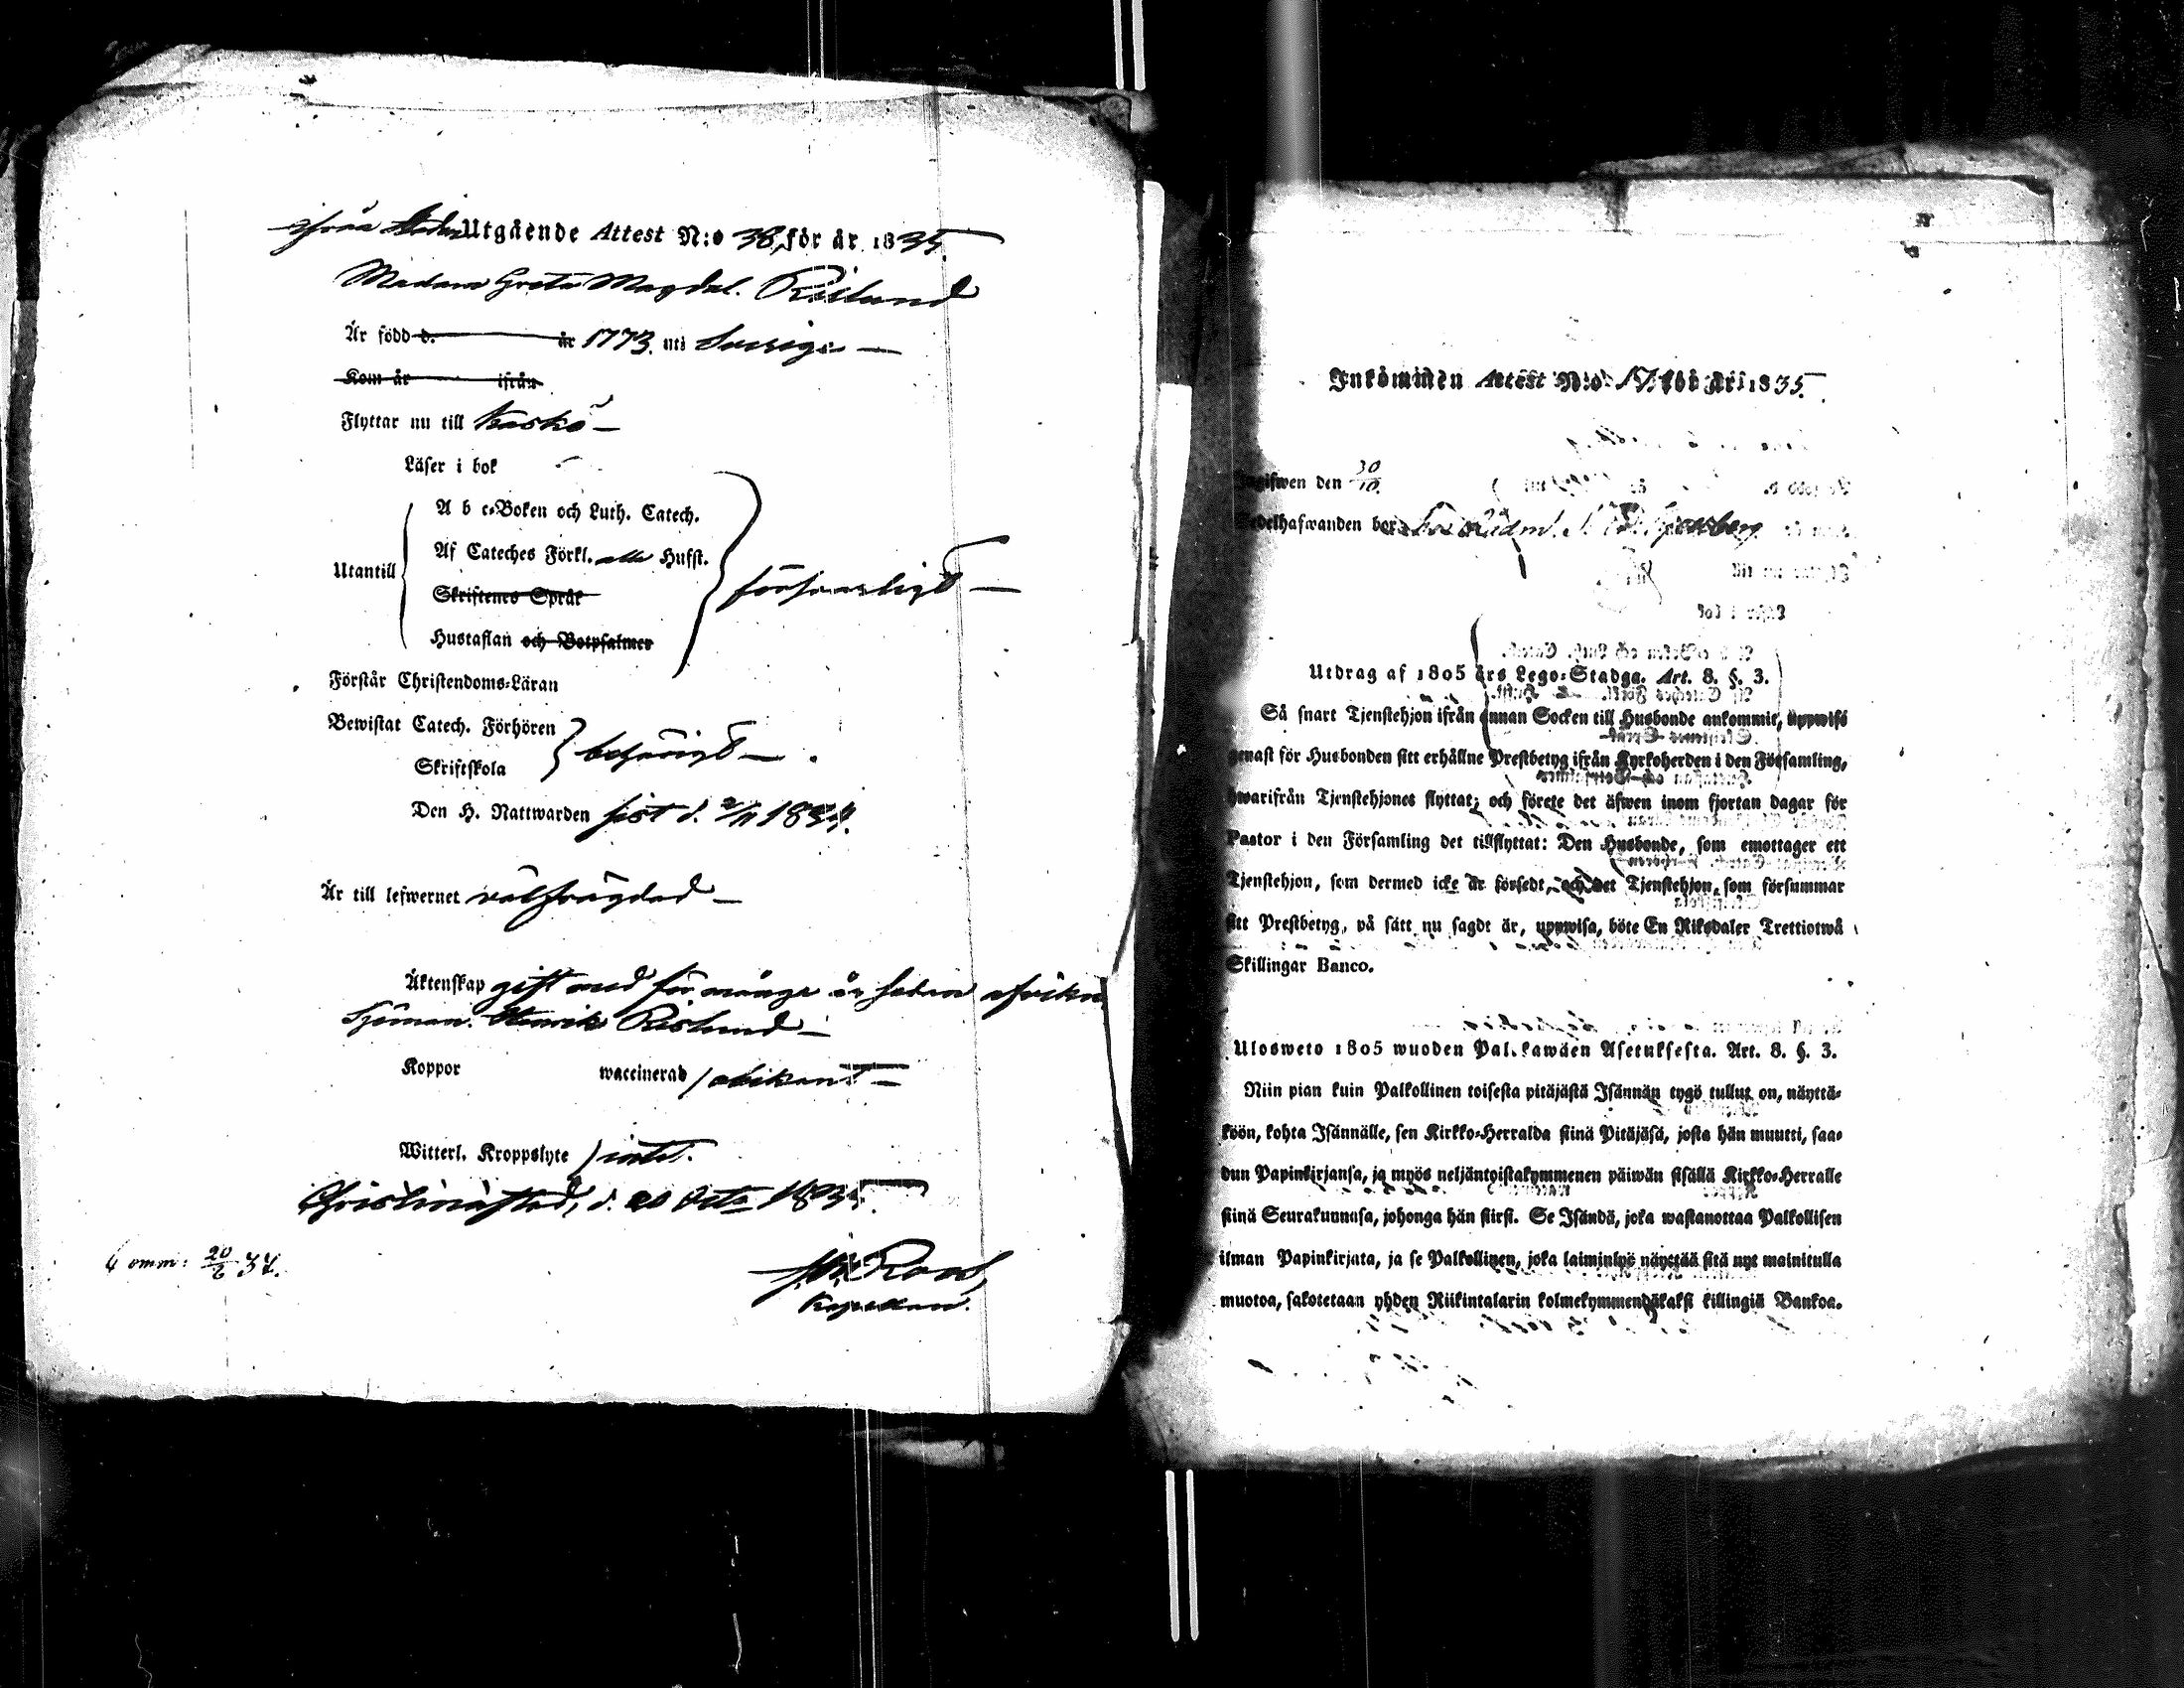 ifrån Staden Utgående Attest N:o 38, för år 1835.
Madam Greta Magdal. Röslund
Är född d. år 1773. uti Sverige —
Kom år ifrån
Flyttar nu till Kaskö —
Läser i bok
A b c-Boken och Luth. Catech.
Af Cateches Förkl. alla Hufst.
Utantill
Skriftenes Språk
försvarligt —
Hustaflan och Botpsalmer
Förstår Christendoms-Läran
Bewistat Catech. Förhören
behörigt —
Skriftskola
Den H. Nattwarden sist d. 2/11 1834.
Är till lefwernet välfrägdad —
Äktenskap gift med för många år sedan afvikne
Sjöman. Henrik Röslund —
Koppor waccinerad / obekant —
Witterl. Kroppslyte / intet.
Christinæstad, d. 20 Octr 1835.
Comm: 20/6 34.
Roos
Kapellan.
Inkommen Attest N:o 17. för år 1835.
Ingifwen den 30/10.
Sedelhafwanden bor
Utdrag af 1805 års Lego-Stadga. Art. 8. §. 3.
Så snart Tjenstehjon ifrån annan Socken till Husbonde ankommit, uppwise
genast för Husbonden sitt erhållne Prestbetyg ifrån Kyrkoherden i den Församling,
hwarifrån Tjenstehjones flyttat; och förete det äfwen inom fjortan dagar för
Pastor i den Församling det tillflyttat: Den Husbonde, som emottager ett
Tjenstehjon, som dermed icke är försedt, och det Tjenstehjon, som försummar
sitt Prestbetyg, på sätt nu sagdt är, uppwisa, böte En Riksdaler Trettiotwå
Skillingar Banco.
Ulosweto 1805 wuoden Palkkawäen Asetuksesta. Art. 8. §. 3.
Niin pian kuin Palkollinen toisesta pitäjästä Isännän tygö tullut on, näyttä-
köön, kohta Isännälle, sen Kirkko-Herralda siinä Pitäjäsä, josta hän muutti, saa-
dun Papinkirjansa, ja myös neljäntoistakymmenen päiwän sisällä Kirkko-Herralle
siinä Seurakunnasa, johonga hän siirsi. Se Isändä, joka wastanottaa Palkollisen
ilman Papinkirjata, ja se Palkollinen, joka laiminlyö näyttää sitä nyt mainitulla
muotoa, sakotetaan yhden Riikintalarin kolmekymmendäkaksi killingiä Bankoa.